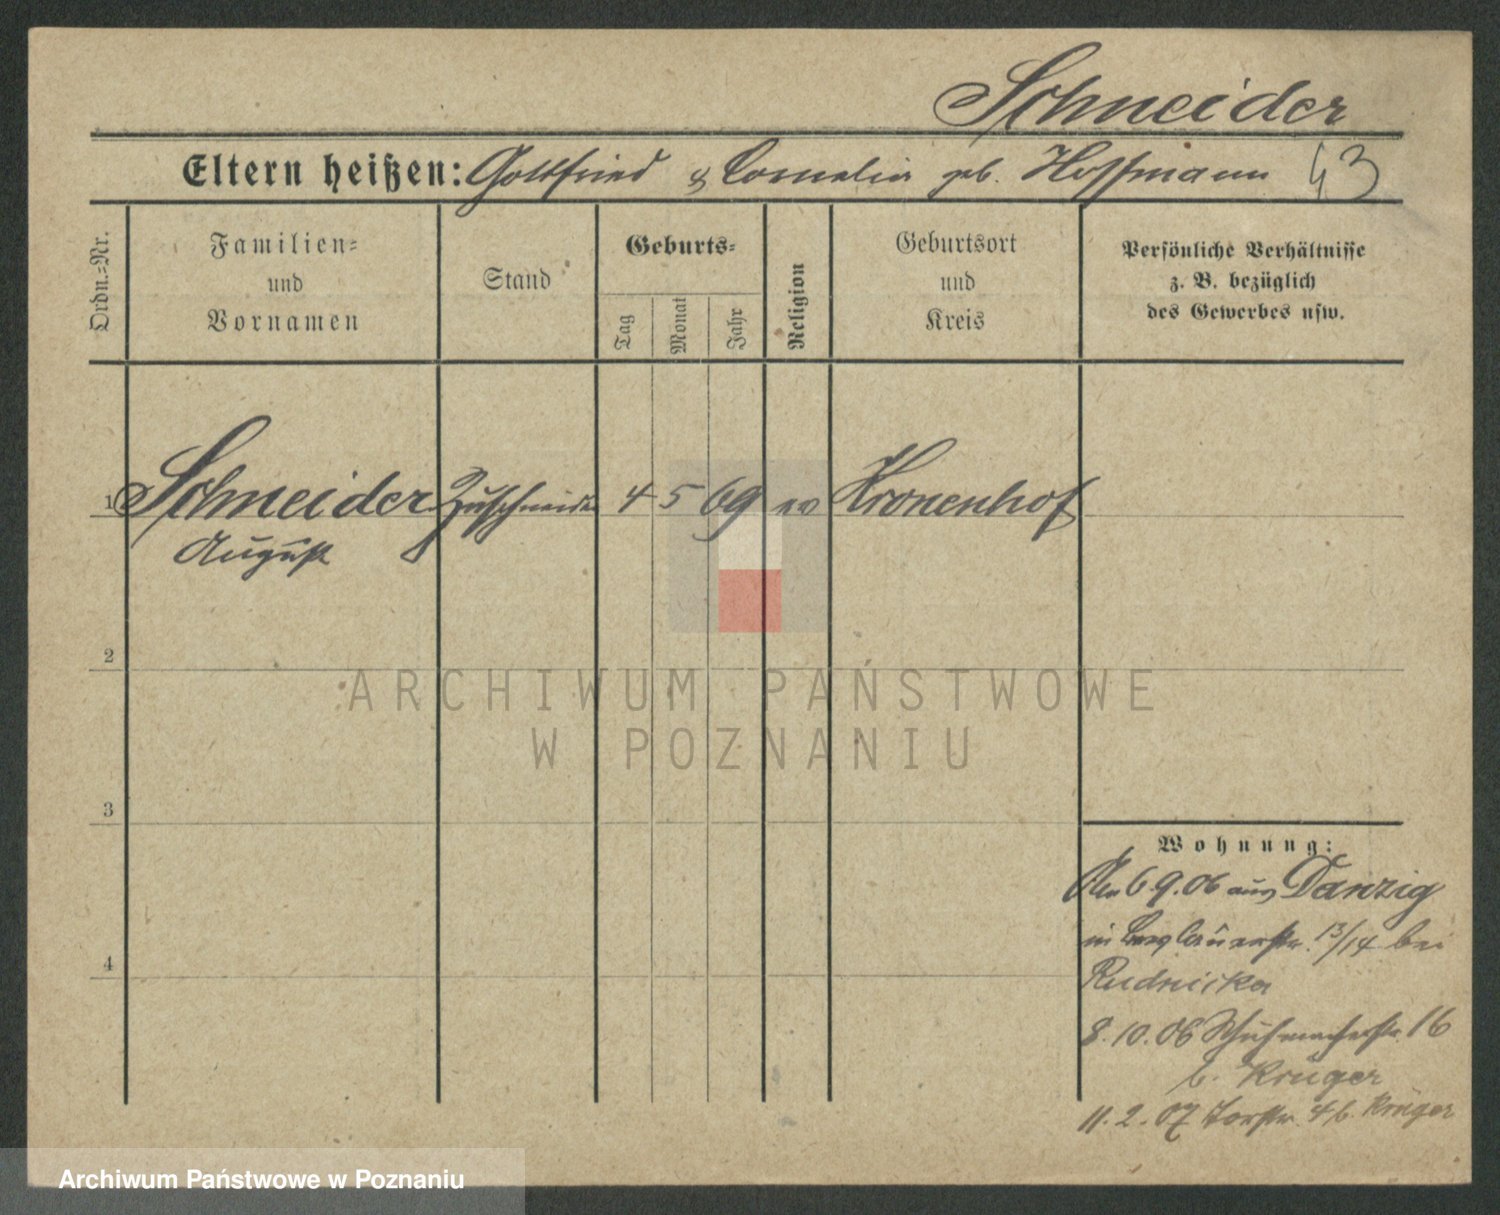 Schneider
Eltern heißen: Gottfried & Cornelia geb. Hoffmann 43
Ordn.=Nr.
Familien=
und
Vornamen
Stand
Geburts=
Tag
Monat
Jahr
Religion
Geburtsort
und
Kreis
Persönliche Verhältnisse
z. B. bezüglich
des Gewerbes usw.
1 Schneider Zuschneider 4 5 69 ev Kronenhof
August
2
ARCHIWUM PAŃSTWOWE
W POZNANIU
3
Wohnung:
6 9.06 aus Danzig
in Breslauerstr. 13/14 bei
4
Rudnicka
8.10.06 Schuhmacherstr. 16
b. Krüger
11.2.07 Torstr. 4 b. Krüger
Archiwum Państwowe w Poznaniu